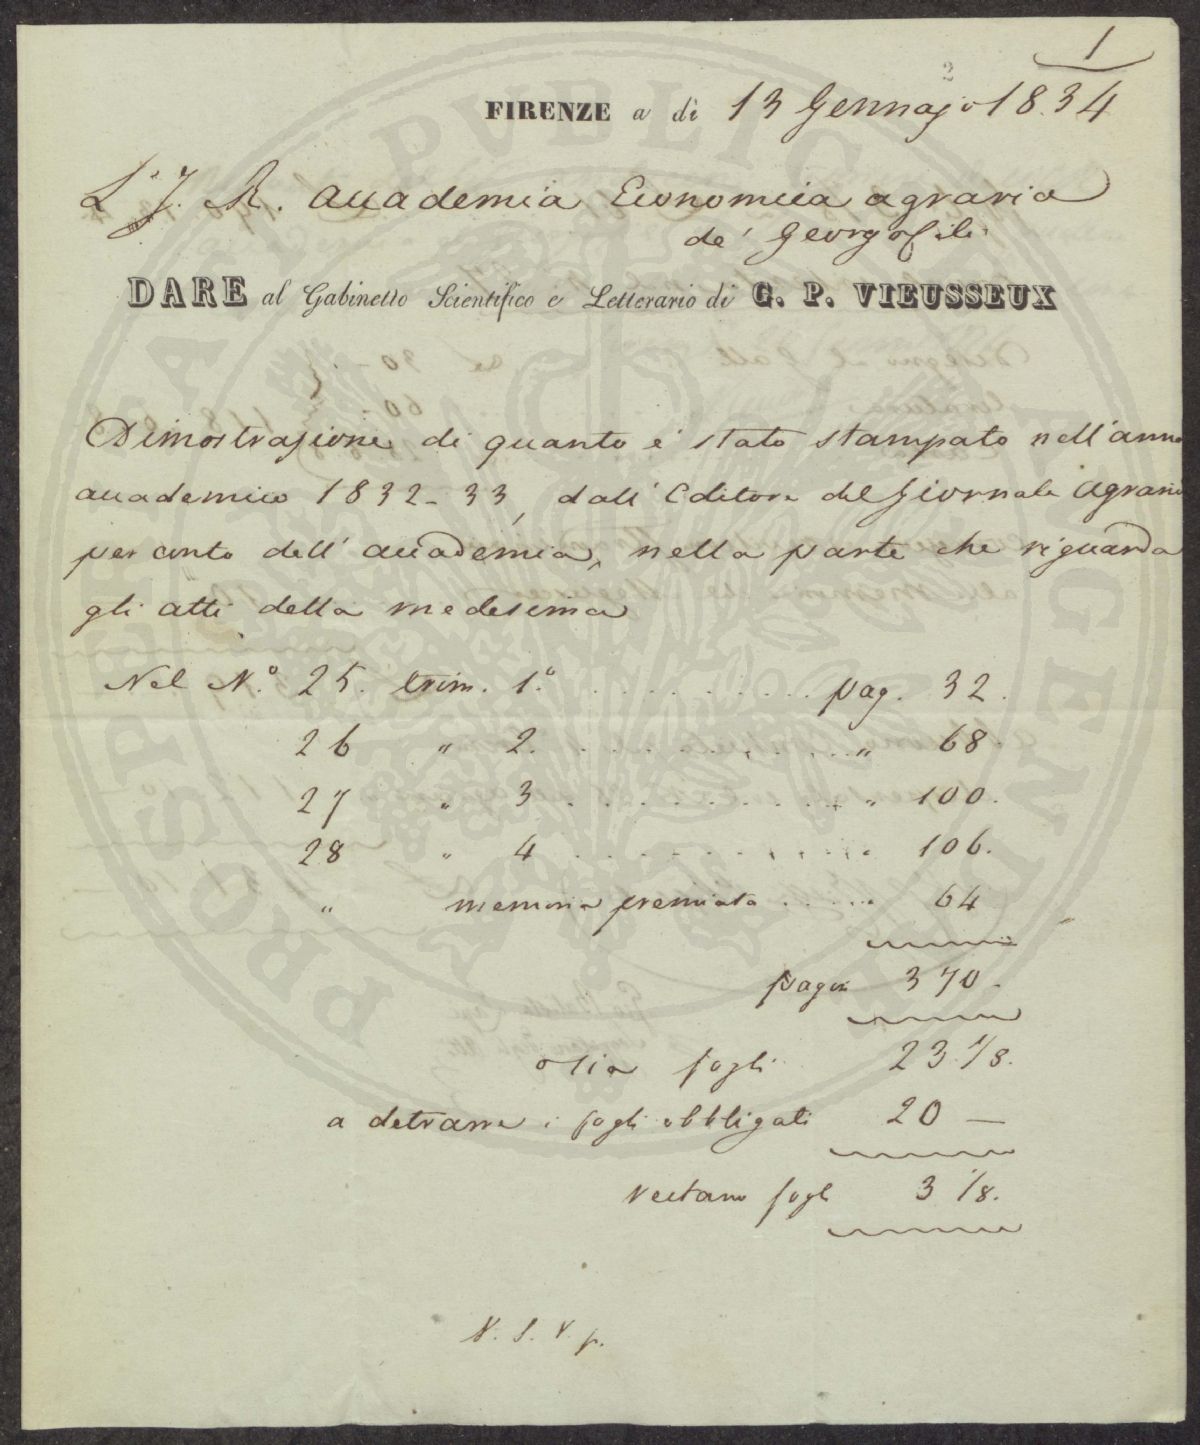 1
2
FIRENZE a dì 13 Gennajo 1834
L'I. R. Accademia Economica agraria
de' Georgofili
DARE al Gabinetto Scientifico e Letterario di G. P. VIEUSSEUX
Dimostrazione di quanto è stato stampato nell'anno
accademico 1832-33, dall'Editore del Giornale Agrario
per conto dell'accademia, nella parte che riguarda
gli atti della medesima
Nel N.º 25. trim. 1.º . . . . . . . . . . pag. 32.
26 " 2. . . . . . . . . . . " 68.
27 " 3 . . . . . . . . . . " 100.
28 " 4 . . . . . . . . . . " 106.
" memoria premiata . . . . . 64
pagin 370.
ossia fogli 23 1/8.
a detrarre i fogli obbligati 20 —
restano fogli 3 1/8.
V. S. V. p.